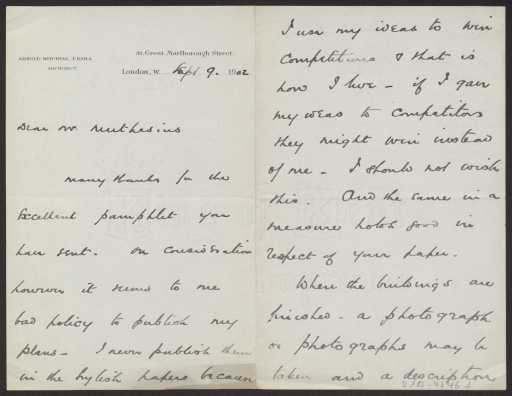 ARNOLD MITCHELL, F.R.I.B.A
ARCHITECT
Great Marlborough Street.
London, W. Sept. 9. 1902
Dear Mr Muthesius
Many thanks for the
Excellent pamphlet you
have sent. On consideration
however it seems to me
bad policy to publish my
plans - I never publish them
in the English papers because
I use my ideas to win
Competitions & that is
how I live - if I gave
my ideas to Competitors
they might win instead
of me - I should not wish
this. And the same in a
measure holds good in
respect of your paper.
When the buildings are
finished - a photograph
or photographs may be
taken and a description